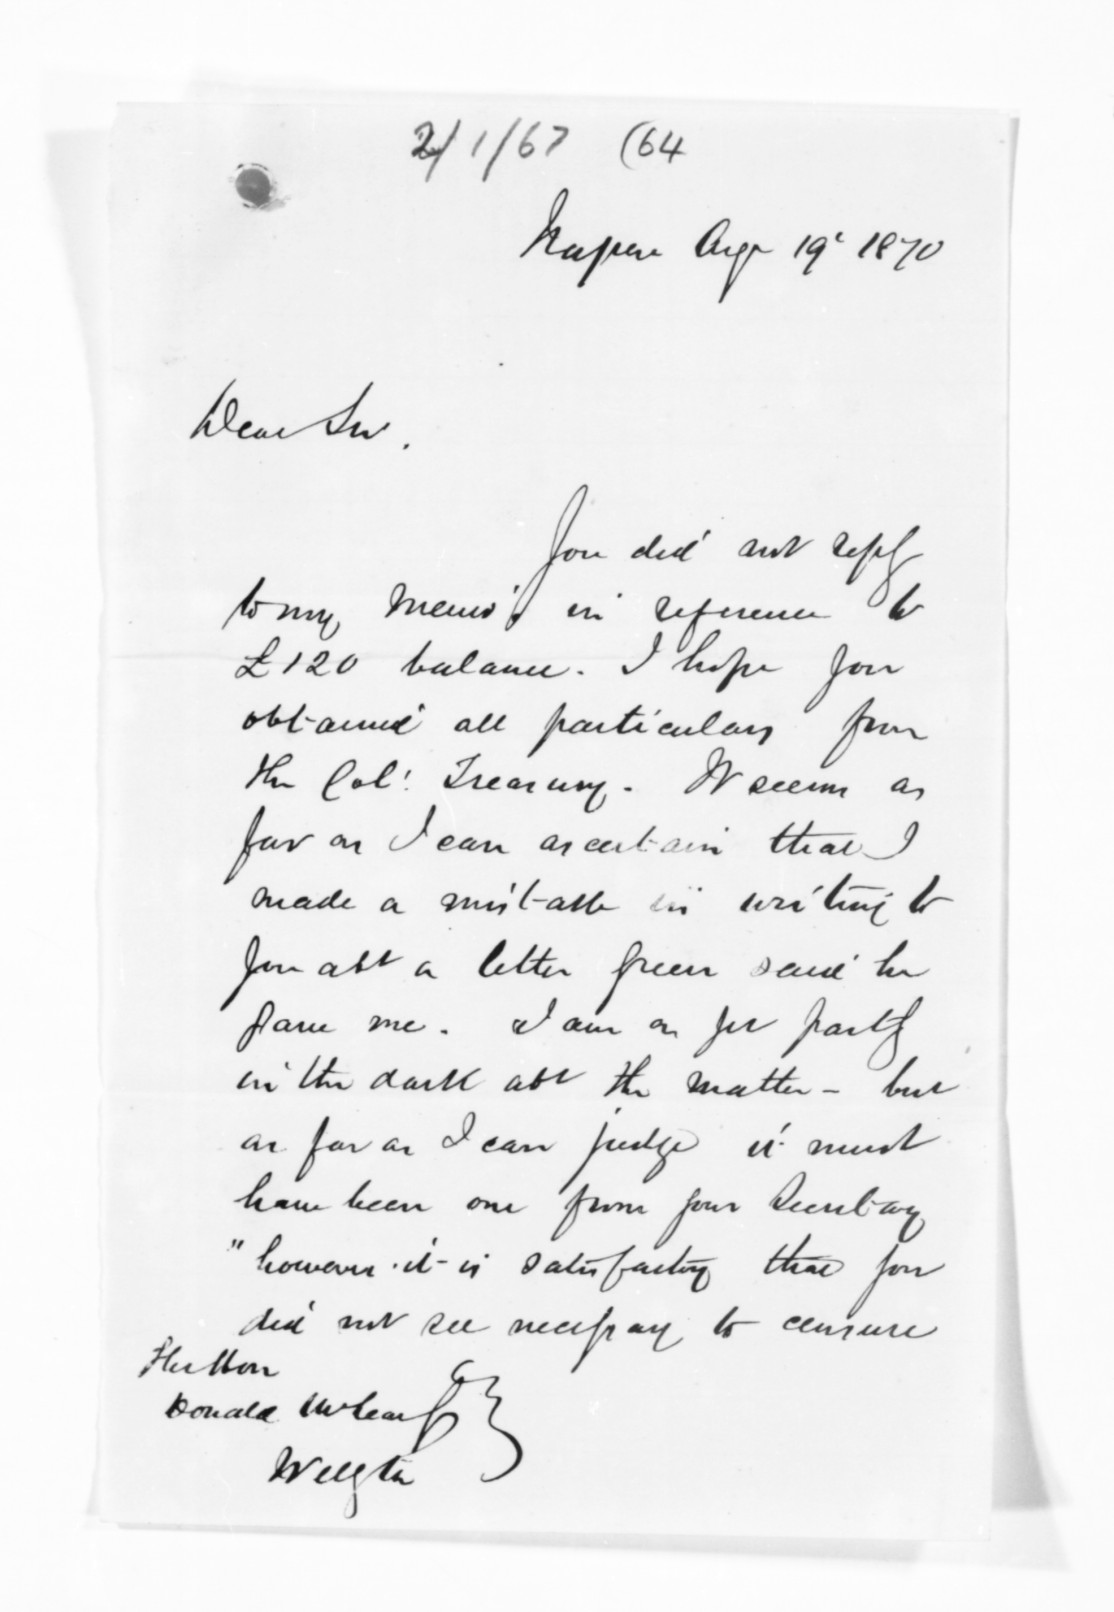 2/1/67 (64
Napier Augt 19t 1870
Dear Sir.
You did not reply
to my memo. in reference to
£120 balance. I hope you
obtained all particulars from
the Col! Treasury. It seems as
far as I can ascertain that I
made a mistake in writing to
you abt a letter Green said he
gave me. I am as yet partly
in the dark abt the matter - but
as far as I can judge it must
have been one from your Secretary
"however it is satisfactory that you
did not see necessary to censure
The Hon
Donald McLean
Wellgtn